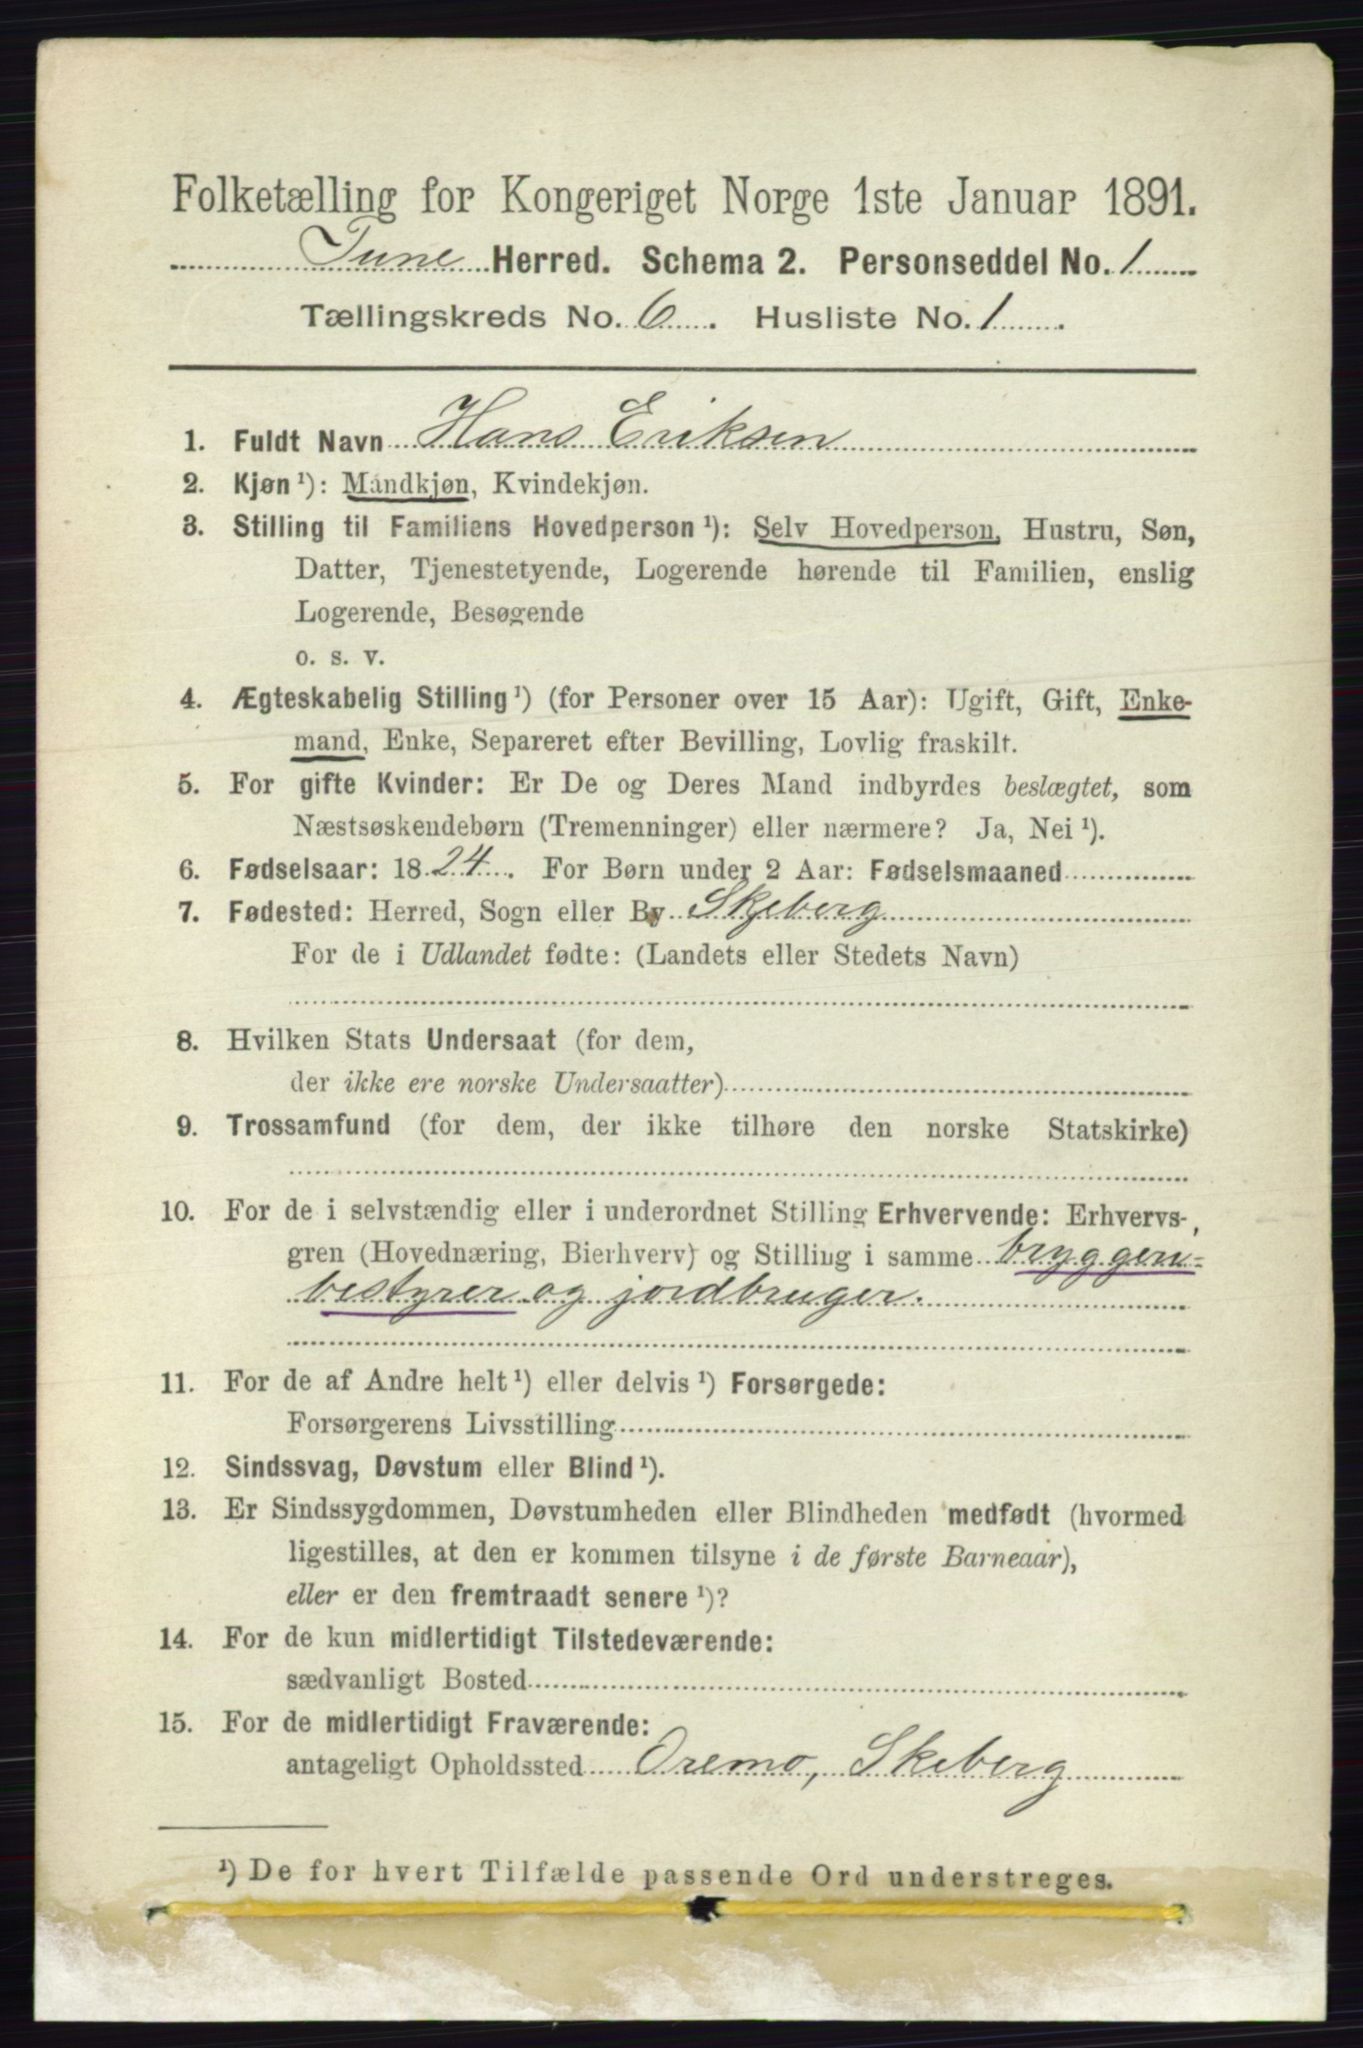 Folketælling for Kongeriget Norge 1ste Januar 1891.
Tune Herred. Schema 2. Personseddel No. 1
Tællingskreds No. 6. Husliste No. 1.
1. Fuldt Navn Hans Eriksen
2. Kjøn ¹): Mandkjøn, Kvindekjøn.
3. Stilling til Familiens Hovedperson ¹): Selv Hovedperson, Hustru, Søn,
Datter, Tjenestetyende, Logerende hørende til Familien, enslig
Logerende, Besøgende
o. s. v.
4. Ægteskabelig Stilling ¹) (for Personer over 15 Aar): Ugift, Gift, Enke-
mand, Enke, Separeret efter Bevilling, Lovlig fraskilt.
5. For gifte Kvinder: Er De og Deres Mand indbyrdes beslægtet, som
Næstsøskendebørn (Tremenninger) eller nærmere? Ja, Nei ¹).
6. Fødselsaar: 1824. For Børn under 2 Aar: Fødselsmaaned
7. Fødested: Herred, Sogn eller By Skjeberg
For de i Udlandet fødte: (Landets eller Stedets Navn)
8. Hvilken Stats Undersaat (for dem,
der ikke ere norske Undersaatter)
9. Trossamfund (for dem, der ikke tilhøre den norske Statskirke)
10. For de i selvstændig eller i underordnet Stilling Erhvervende: Erhvervs-
gren (Hovednæring, Bierhverv) og Stilling i samme bryggeri-
bestyrer og jordbruger.
11. For de af Andre helt ¹) eller delvis ¹) Forsørgede:
Forsørgerens Livsstilling
12. Sindssvag, Døvstum eller Blind ¹).
13. Er Sindssygdommen, Døvstumheden eller Blindheden medfødt (hvormed
ligestilles, at den er kommen tilsyne i de første Barneaar),
eller er den fremtraadt senere ¹)?
14. For de kun midlertidigt Tilstedeværende:
sædvanligt Bosted
15. For de midlertidigt Fraværende:
antageligt Opholdssted Oremo, Skeberg
¹) De for hvert Tilfælde passende Ord understreges.